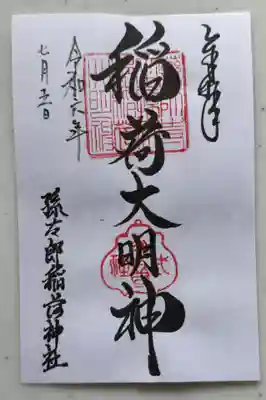 奉拝
稲荷大明神
令和六年
七月十一日
孫太郎稲荷神社